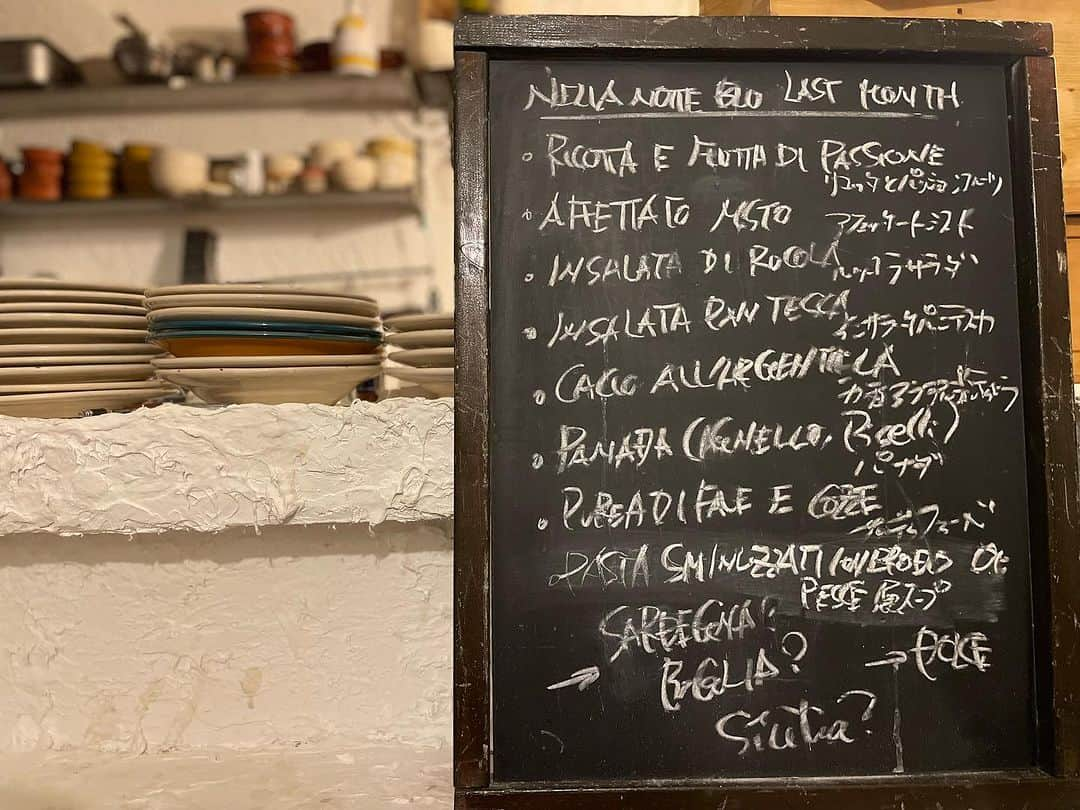 NELLA NOTTE BLU LAST MONTH
RICOTTA E FRUTTA DI PASSIONE
リコッタとパッションフルーツ
AFFETTATO MISTO
アフェッタートミスト
INSALATA DI RUCOLA
ルッコラサラダ
INSALATA PANTESCA
インサラータパンテスカ
CACIO ALL'ARGENTIERA
PANADA (AGNELLO, Piselli)
パナダ
PUREA DI FAVE E COZZE
PASTA SMINUZZATI CON BRODO DI
PESCE 魚スープ
SARDEGNA?
→ PUGLIA? → DOLCE
Sicilia?